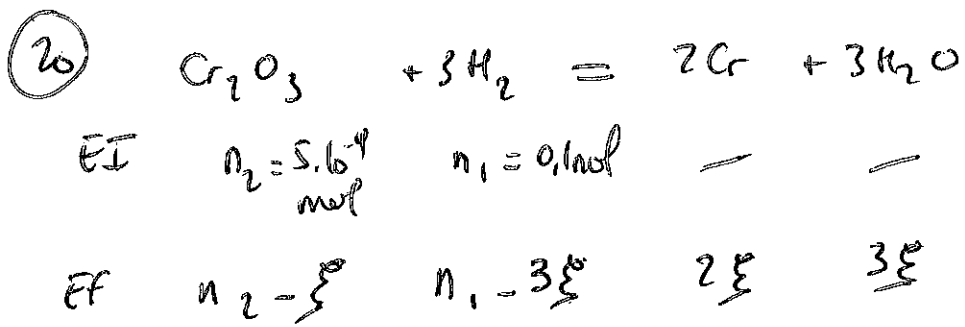 20 Cr2O3 + 3H2 = 2Cr + 3H2O
EI n2 = 5.10^-4 mol n1 = 0,1mol — —
EF n2 - ξ n1 - 3ξ 2ξ 3ξ